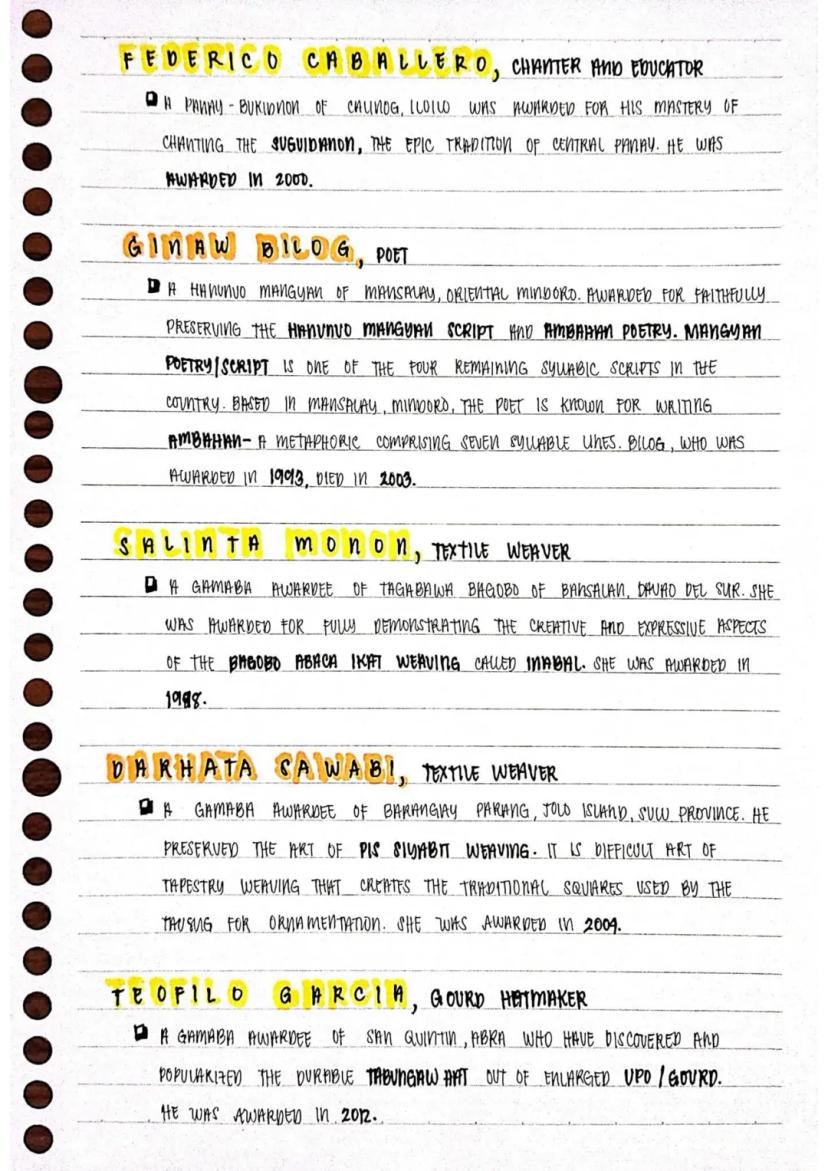 FEDERICO CABALLERO, CHANTER AND EDUCATOR
A PANAY-BUKIDNON OF CALINOG, ILOILO WAS AWARDED FOR HIS MASTERY OF
CHANTING THE SUGUIDANON, THE EPIC TRADITION OF CENTRAL PANAY. HE WAS
AWARDED IN 2000.
GINAW BILOG, POET
A HANUNUO MANGYAN OF MANSALAY, ORIENTAL MINDORO. AWARDED FOR FAITHFULLY
PRESERVING THE HANUNUO MANGYAN SCRIPT AND AMBAHAN POETRY. MANGYAN
POETRY/SCRIPT IS ONE OF THE FOUR REMAINING SYLLABIC SCRIPTS IN THE
COUNTRY. BASED IN MANSALAY, MINDORO, THE POET IS KNOWN FOR WRITING
AMBAHAN- A METAPHORIC COMPRISING SEVEN SYLLABLE LINES. BILOG, WHO WAS
AWARDED IN 1993, DIED IN 2003.
SALINTA MONON, TEXTILE WEAVER
A GAMABA AWARDEE OF TAGABAWA BAGOBO OF BANSALAN, DAVAO DEL SUR. SHE
WAS AWARDED FOR FULLY DEMONSTRATING THE CREATIVE AND EXPRESSIVE ASPECTS
OF THE BAGOBO ABACA IKAT WEAVING CALLED INABAL. SHE WAS AWARDED IN
1998.
DARHATA SAWABI, TEXTILE WEAVER
A GAMABA AWARDEE OF BARANGAY PARANG, JOLO ISLAND, SULU PROVINCE. HE
PRESERVED THE ART OF PIS SIYABIT WEAVING. IT IS DIFFICULT ART OF
TAPESTRY WEAVING THAT CREATES THE TRADITIONAL SQUARES USED BY THE
TAUSUG FOR ORNAMENTATION. SHE WAS AWARDED IN 2004.
TEOFILO GARCIA, GOURD HATMAKER
A GAMABA AWARDEE OF SAN QUINTIN, ABRA WHO HAVE DISCOVERED AND
POPULARIZED THE DURABLE TABUNGAW HAT OUT OF ENLARGED UPO/GOURD.
HE WAS AWARDED IN 2012.